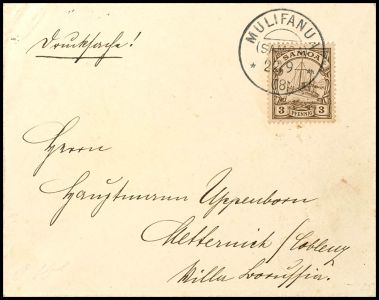 Drucksache!
MULIFANUA
(SA
22 9
SAMOA
3 PFENNIG 3
Herrn
Hauptmann Uppenborn
Metternich / Coblenz
Villa Borussia.